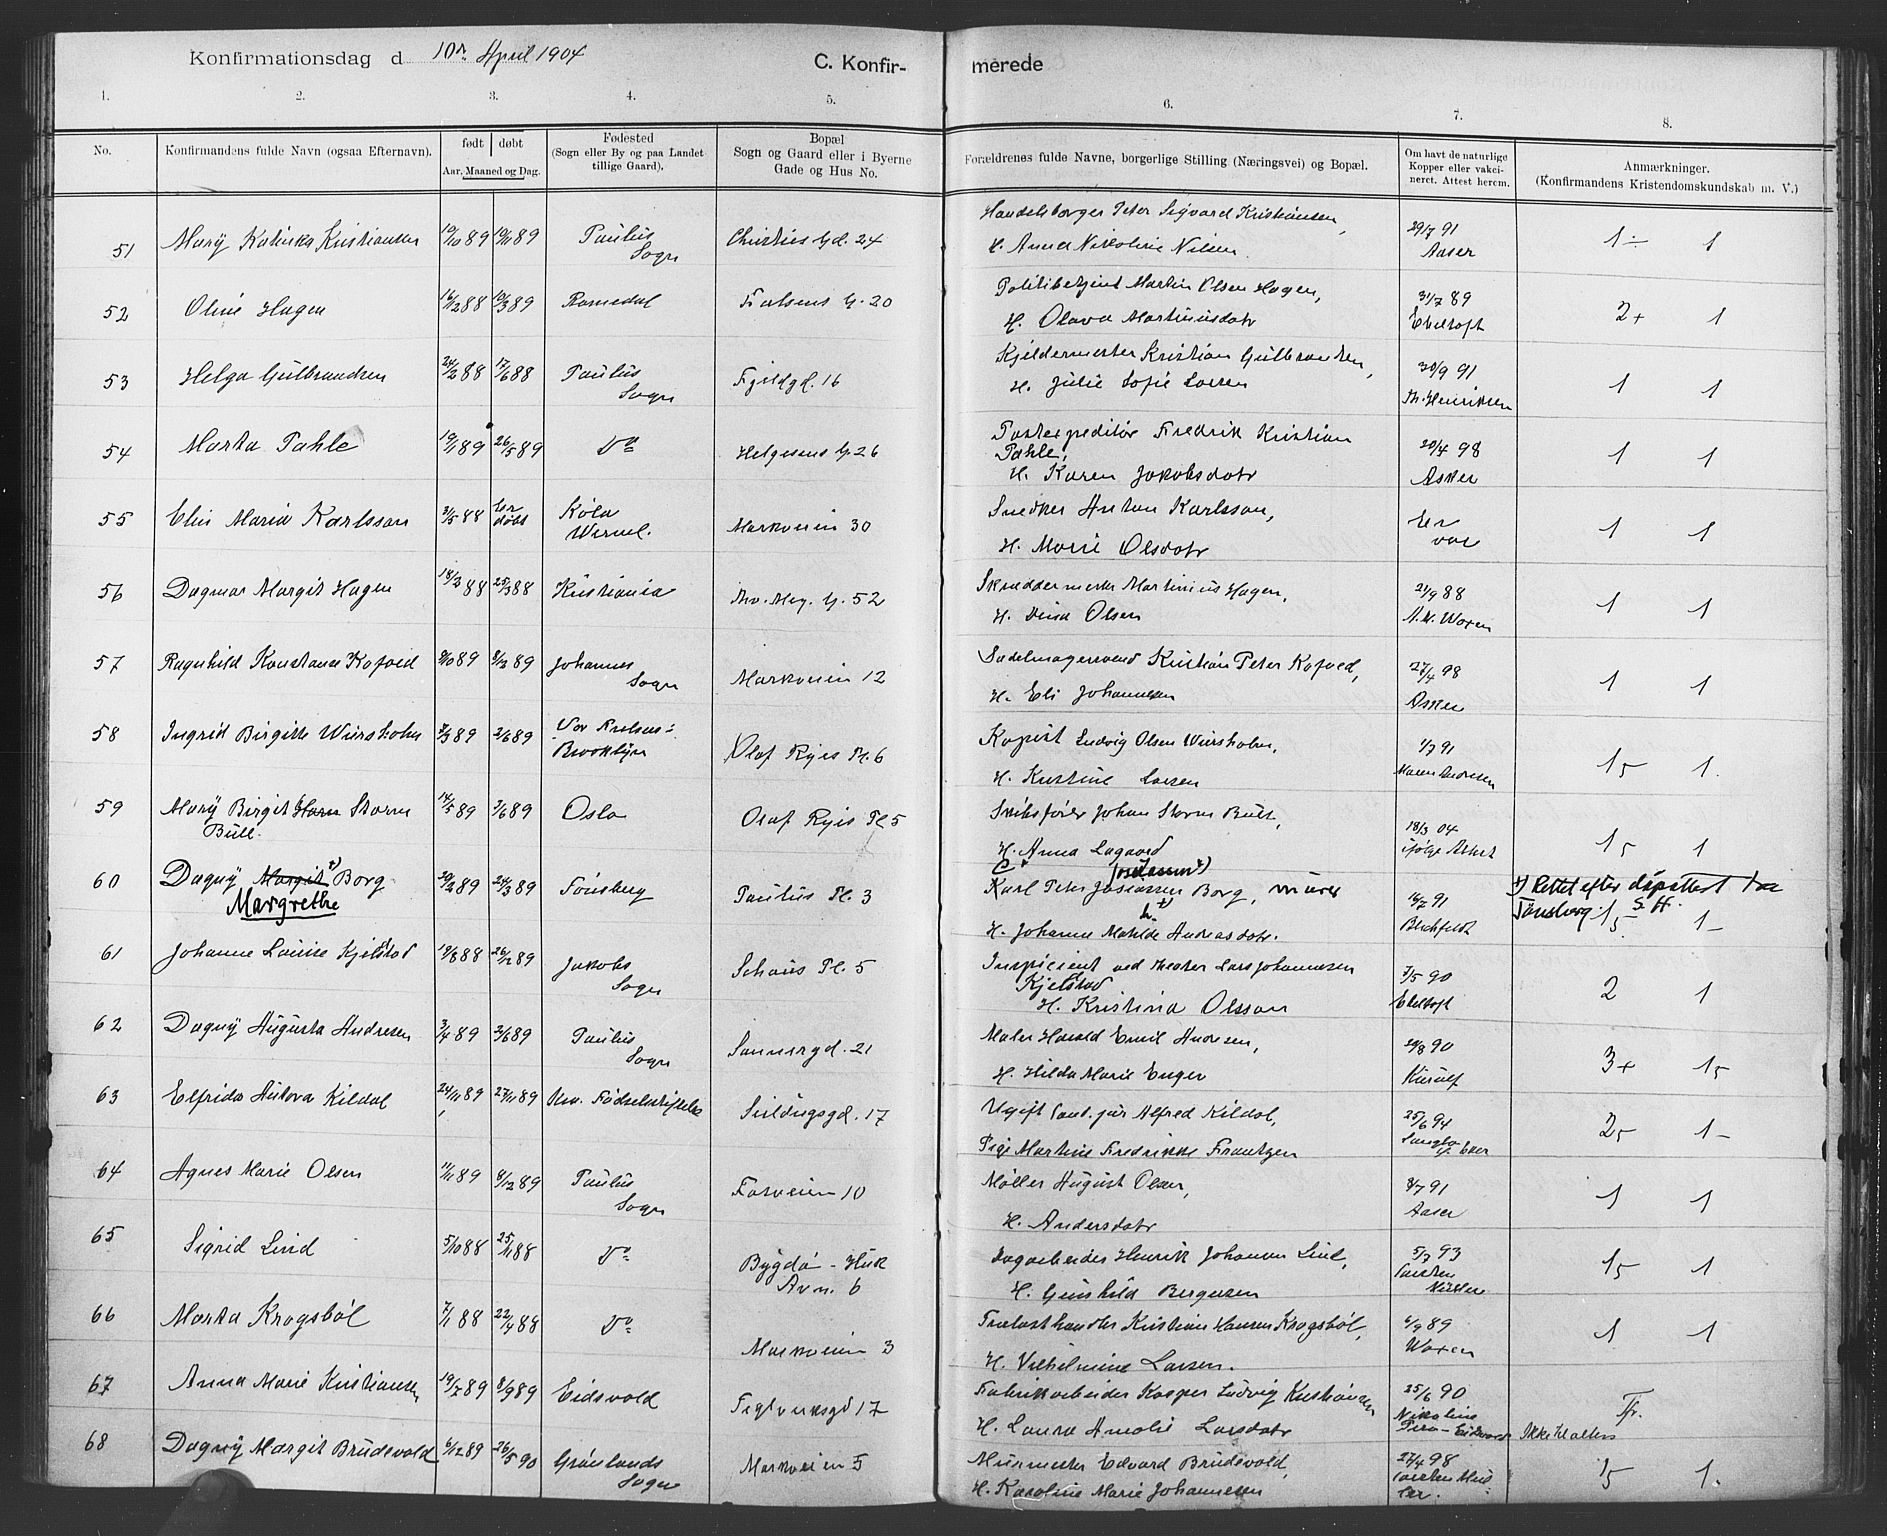 Konfirmationsdag d 10. April 1904
C. Konfir- merede
1. 2. 3. 4. 5. 6. 7. 8.
No.
Konfirmandens fulde Navn (ogsaa Efternavn).
født døbt
Aar, Maaned og Dag.
Fødested
(Sogn eller By og paa Landet
tillige Gaard).
Bopæl
Sogn og Gaard eller i Byerne
Gade og Hus No.
Forældrenes fulde Navne, borgerlige Stilling (Næringsvei) og Bopæl.
Om havt de naturlige
Kopper eller vakci-
neret. Attest herom.
Anmærkninger.
(Konfirmandens Kristendomskundskab m. V.)
Handelsborger Peter Sigvard Kristiansen,
51 Mary Katinka Kristiansen 19/10 89 10/11 89 Paulus Sogn Christies Gd. 24
H. Anna Nikoline Nilsen 29/7 91 Aaser 1 ÷ 1
Politibetjent Martin Olsen Hagen,
52 Oline Hagen 16/12 88 10/3 89 Romedal Falsens G. 20
H. Olava Martinusdatr 31/7 89 Ebeltoft 2+ 1
Kjeldermester Kristian Gulbrandsen,
53 Helga Gulbrandsen 24/2 88 17/6 88 Paulus Sogn Fjeldgd. 16
H. Julie Sofie Larsen 30/9 91 Th. Henriksen 1 1
Postexpeditør Fredrik Kristian
Pahle,
54 Marta Pahle 19/1 89 26/5 89 Do Helgesens G. 26
H. Karen Jakobsdatr 20/4 98 Asker 1 1
Snedker Anton Karlsson,
55 Elin Maria Karlsson 3/5 88 Er døbt Køla Werml. Markveien 30
H. Marie Olsdatr Er vac 1 1
Skræddermester Martinius Hagen,
56 Dagmar Margit Hagen 18/3 88 25/3 88 Kristiania Thv. Mey. G. 52
H. Dina Olsen 21/9 88 1 1
57 Ragnhild Konstanse Kofoed 9/10 89 8/12 89 Johannes Sogn Markveien 12
Sadelmagersvend Kristian Peter Kofoed,
H. Eli Johannesen 27/4 98 Asker 1 1
58 Ingrid Birgitte Wiersholm 7/3 89 2/6 89 Vor Frelsers: Brooklyn Olaf Ryes Pl. 6
Kopist Ludvig Olsen Wiersholm,
H. Kristine Larsen 1/7 91 Maren Andresen 15 1.
59 Mary Birgit Storm
Bull. 14/5 89 3/6 89 Oslo Olaf Ryes Pl 5
Skibsfører Johan Storm Bull,
H. Anna Lagaard 18/3 04 ifølge Attest 15 1
60 Dagny Margit †) Borg
Margrethe 20/2 89 24/3 89 Tønsberg Paulus Pl. 3
Karl Peter Josiassen Borg, murer
H. Johanne Matilde Andreasdatr. 16/7 91 Blichfeldt
†) Rettet efter dåpattest fra
Tønsberg. S. H. 15 1-
61 Johanne Louise Kjelstad 19/8 88 26/12 89 Jakobs Sogn Schous Pl. 5
Inspicient ved theater Lars Johannesen
Kjelstad
H. Kristina Olsson 7/5 90 Ebeltoft 2 1
62 Dagny Augusta Andresen 3/4 89 2/6 89 Paulus Sogn Sannergd. 21
Maler Harald Emil Andresen,
H. Hilda Marie Enger 20/8 90 Kierulf 3+ 15
63 Elfrida Antora Kildal 24/11 89 27/11 89 Univ. Fødselsstiftelse Seildugsgd. 17
Ugift Cand. jur Alfred Kildal,
Pige Martine Fredrikke Frantzen 25/6 94 25 1-
64 Agnes Marie Olsen 11/11 89 8/12 89 Paulus Sogn Fosveien 10
Møller August Olsen,
H. Andersdatr 3/7 91 Aaser 1 1
65 Sigrid Lind 5/10 88 25/11 88 Do Bygdø - Huk
Avn. 6
Dagarbeider Henrik Johansen Lind,
H. Gunhild Bergersen 5/7 93 Carsten Müller 15 1
66 Marta Krogsbøl 7/1 88 22/4 88 Do Markveien 3
Frølasthandler Kristian Hansen Krogsbøl,
H. Vilhelmine Larsen. 6/9 89 Woxen 1 1
67 Anna Marie Kristiansen 19/7 89 8/9 89 Eidsvold Teglverksgd 17
Fabrikarbeider Kasper Ludvig Kristiansen
H. Laura Amalie Larsdatr 25/6 90 Nikoline Eidsvold Fr.
68 Dagny Margit Brudevold 6/12 89 26/5 90 Grønlands Sogn Markveien 5
Murmester Edvard Brudevold,
H. Karoline Marie Johannesen 27/4 98 Carsten Mül-
ler. 15 1.